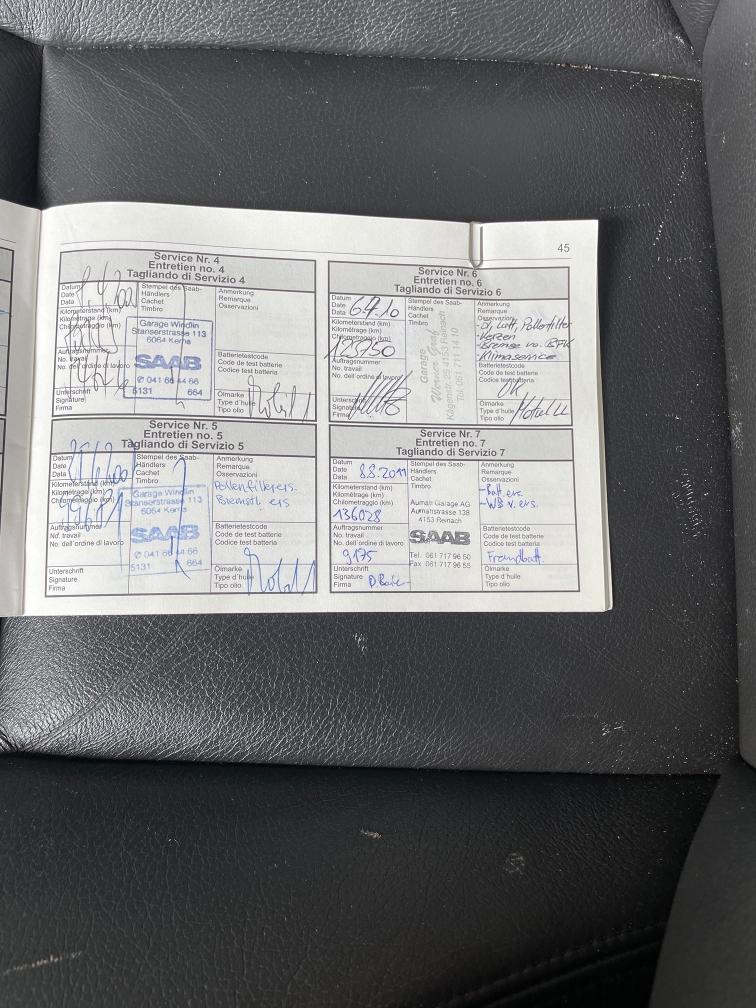 45
Service Nr. 4
Entretien no. 4
Tagliando di Servizio 4
Datum
Date
Data
Kilometerstand (km)
Kilométrage (km)
Chilometraggio (km)
Auftragsnummer
No. travail
No. dell'ordine di lavoro
Unterschrift
Signature
Firma
Stempel des Saab-
Händlers
Cachet
Timbro
Garage Windlin
Stanserstrasse 113
6064 Kerns
SAAB
041 66 66
5131 664
Anmerkung
Remarque
Osservazioni
Batterietestcode
Code de test batteria
Codice test batteria
Ölmarke
Type d'huile
Tipo olio
Mobil 1
Service Nr. 5
Entretien no. 5
Tagliando di Servizio 5
Datum
Date
Data
Kilometerstand (km)
Kilométrage (km)
Chilometraggio (km)
Auftragsnummer
No. travail
No. dell'ordine di lavoro
Unterschrift
Signature
Firma
Stempel des Saab-
Händlers
Cachet
Timbro
Garage Windlin
Stanserstrasse 113
6064 Kerns
SAAB
041 66 66
5131 664
Anmerkung
Remarque
Osservazioni
Pollenfilter ers.
Bremsfl. ers
Batterietestcode
Code de test batteria
Codice test batteria
Ölmarke
Type d'huile
Tipo olio
Mobil 1
Service Nr. 6
Entretien no. 6
Tagliando di Servizio 6
Datum
Date
Data
6.7.10
Kilometerstand (km)
Kilométrage (km)
Chilometraggio (km)
125750
Auftragsnummer
No. travail
No. dell'ordine di lavoro
Unterschrift
Signature
Firma
Stempel des Saab-
Händlers
Cachet
Timbro
Garage
Werner
4153 Reinach
Tel. 061 711 14 10
Anmerkung
Remarque
Osservazioni
-Öl, Luft, Pollenfilter
-Kerzen
-Bremse vo.
-Klimaservice
Batterietestcode
Code de test batteria
Codice test batteria
OK
Ölmarke
Type d'huile
Tipo olio
Service Nr. 7
Entretien no. 7
Tagliando di Servizio 7
Datum
Date
Data
8.8.2011
Kilometerstand (km)
Kilométrage (km)
Chilometraggio (km)
136028
Auftragsnummer
No. travail
No. dell'ordine di lavoro
9175
Unterschrift
Signature
Firma
Stempel des Saab-
Händlers
Cachet
Timbro
Aumatt Garage AG
Aumattstrasse 138
4153 Reinach
SAAB
Tel. 061 717 96 50
Fax 061 717 96 55
Anmerkung
Remarque
Osservazioni
-Batt. ers.
-WB v. ers.
Batterietestcode
Code de test batteria
Codice test batteria
Fremdbatt.
Ölmarke
Type d'huile
Tipo olio